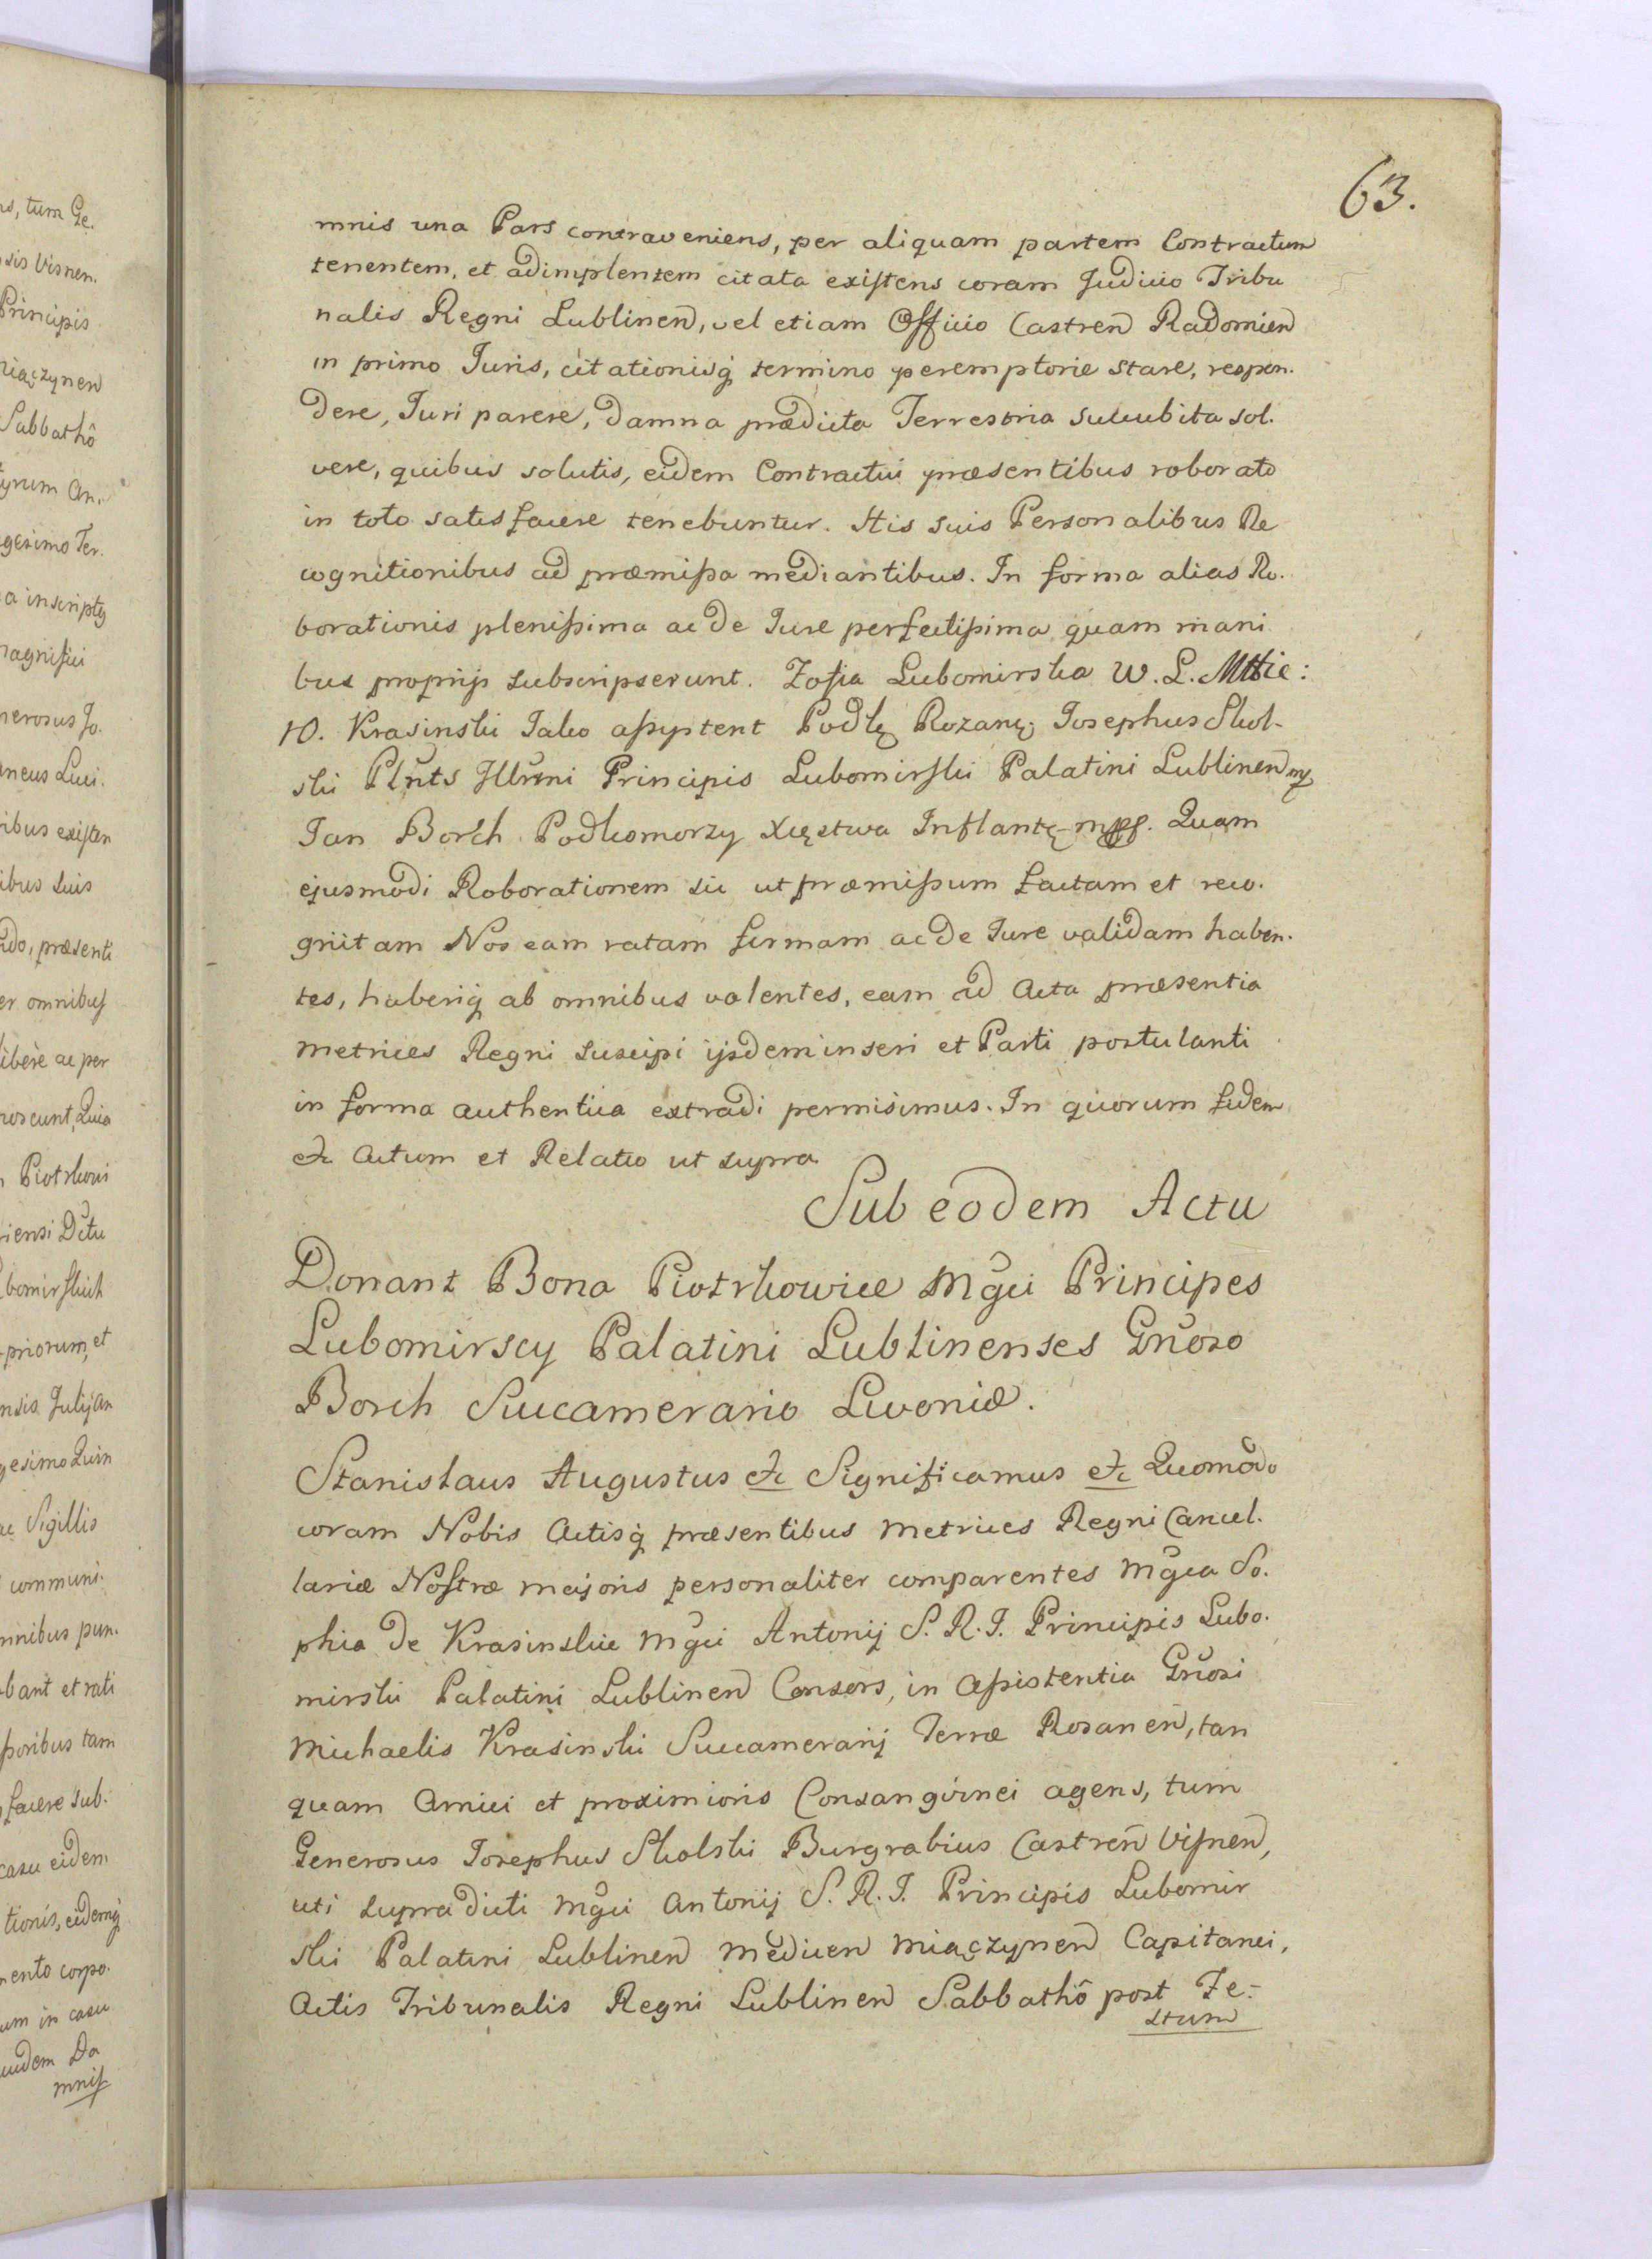 63.
mnis una Pars contraveniens, per aliquam partem Contractum
tenentem, et adimplentem citata existens coram Judicio Tribu
nalis Regni Lublinen, vel etiam Officio Castren Radomien
in primo Juris, citationisq́ termino peremptorie stare, respon.
dere, Juri parere, damna prædicta Terrestria succubita sol.
vere, quibus solutis, eidem Contractui præsentibus roborato
in toto satisfacere tenebuntur. His suis Personalibus Re
cognitionibus ad præmissa mediantibus. In forma alias Ro.
borationis plenissima ac de Jure perfectissima quam mani
bus proprijs subscripserunt. Zofia Lubomirska W. L.
10. Krasinski Jako assystent Podk Rozanę; Josephus Skol-
ski Plnts Illmni Principis Lubomirski Palatini Lublinen mp
Jan Borch Podkomorzy Xięstwa Inflantę- mpp. Quam
ejusmodi Roborationem sic ut præmissum factam et reco.
gnitam Nos eam ratam firmam ac de Jure validam haben.
tes, haberiq́ ab omnibus volentes, eam ad Acta præsentia
Metrices Regni suscipi ijsdem inseri et Parti postulanti
in forma authentica extradi permisimus. In quorum fidem
etc Actum et Relatio ut supra
Sub eodem Actu
Donant Bona Piotrkowice Mgci Principes
Lubomirscy Palatini Lublinenses Gnoso
Borch Succamerario Livoniæ.
Stanislaus Augustus etc Significamus etc Quomodo
coram Nobis Actisq́ præsentibus Metrices Regni Cancel.
lariæ Nostræ majoris personaliter comparentes Mgca So.
phia de Krasinskie Mgci Antonij S. R. I. Principis Lubo.
mirski Palatini Lublinen Consors, in Assistentia Gnosi
Michaelis Krasinski Succamerarij Terræ Rosanen, tan
quam Amici et proximioris Consangvinei agens, tum
Generosus Josephus Skolski Burgrabius Castren Visnen,
uti supradicti Mgci Antonij S. R. I. Principis Lubomir
ski Palatini Lublinen Medicen Miączynen Capitanei,
Actis Tribunalis Regni Lublinen Sabbathô post Fe-
stum